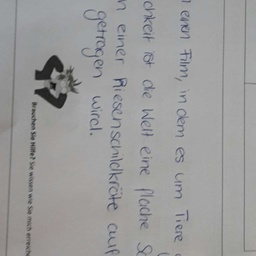 einen Film, in dem es um Tiere
ist die Welt eine flache
n einer Riesenschildkröte auf
getragen wird.
Brauchen Sie Hilfe? Sie wissen wie Sie mich erreich